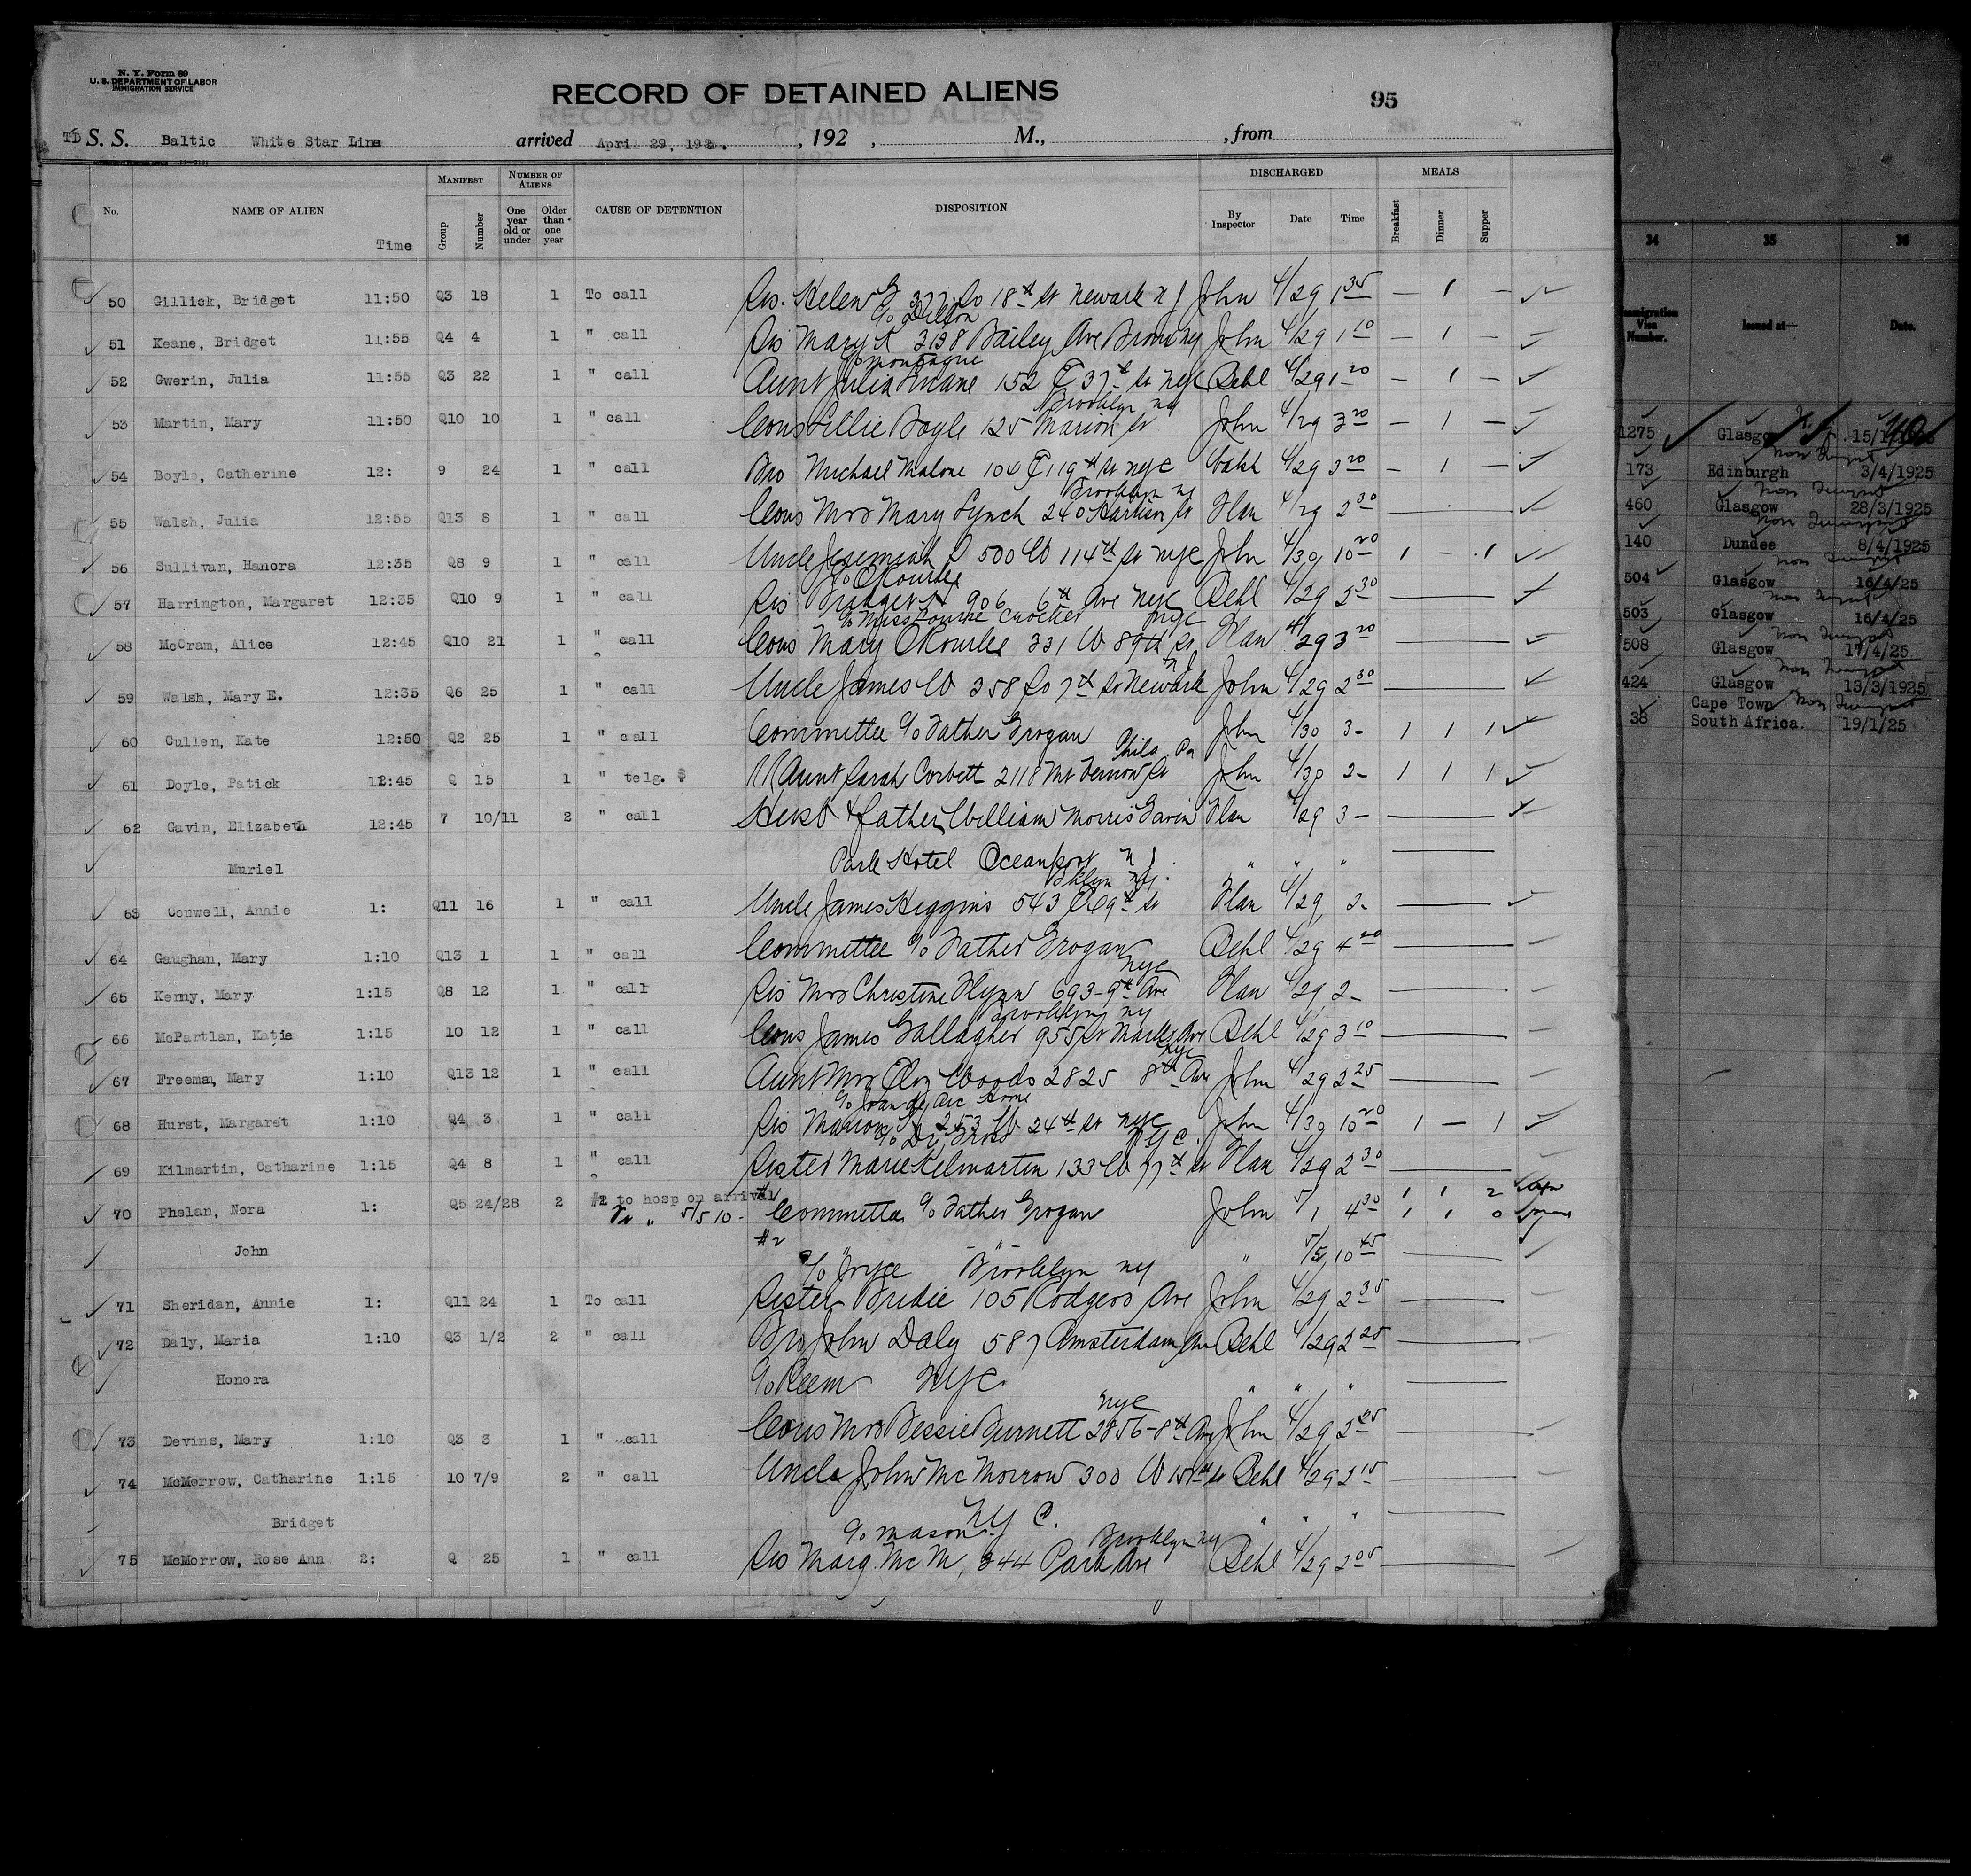 N. Y. Form 89
U. S. DEPARTMENT OF LABOR
IMMIGRATION SERVICE
RECORD OF DETAINED ALIENS
95
TD S. S. Baltic White Star Line arrived April 29, 192 , 192 , M., , from
MANIFEST NUMBER OF ALIENS DISCHARGED MEALS
No. NAME OF ALIEN Time Group Number One year old or under Older than one year CAUSE OF DETENTION DISPOSITION By Inspector Date Time Breakfast Dinner Supper
50 Gillick, Bridget 11:50 Q3 18 1 To call Sis. Helen G 377 So 18th St Newark NJ John 4/29 1 35 — 1 —
c/o Dillon
51 Keane, Bridget 11:55 Q4 4 1 " call Sis Mary K 3138 Bailey Ave Bronx NY John 4/29 1 10 — 1 —
c/o Montague
52 Gwerin, Julia 11:55 Q3 22 1 " call Aunt Julia 152 E 37th St NYC Behl 4/29 1 20 — 1 —
Brooklyn NY
53 Martin, Mary 11:50 Q10 10 1 " call Cous Lillie Boyle 125 Marion St John 4/29 3 20 — 1 —
54 Boyle, Catherine 12: 9 24 1 " call Bro Michael Malone 104 E 119th St NYC 4/29 3 20 — 1 —
Brooklyn NY
55 Walsh, Julia 12:55 Q13 8 1 " call Cous Mrs Mary Lynch 240 Harrison St Flan 4/29 2 30
56 Sullivan, Hanora 12:35 Q8 9 1 " call Uncle Jeremiah S 500 W 114th St NYC John 4/30 10 20 1 — 1
c/o O'Rourke
57 Harrington, Margaret 12:35 Q10 9 1 " call Sis Bridget H 906 6th Ave NYC Behl 4/29 2 30
c/o Miss Crocker NYC
58 McCram, Alice 12:45 Q10 21 1 " call Cous Mary O'Rourke 331 W 89th St Flan 4/29 3 20
NJ
59 Walsh, Mary E. 12:35 Q6 25 1 " call Uncle James W 258 So 7th St Newark John 4/29 2 30
60 Cullen, Kate 12:50 Q2 25 1 " call Committee c/o Father Grogan John 4/30 3- 1 1 1
Phila Pa
61 Doyle, Patick 12:45 Q 15 1 " telg. $ RR Aunt Sarah Corbett 2118 Mt Vernon St John 4/30 2- 1 1 1
62 Gavin, Elizabeth 12:45 7 10/11 2 " call Husb & father William Morris Gavin Flan 4/29 3-
Muriel Park Hotel Oceanport NJ. " " "
Bklyn NY.
63 Conwell, Annie 1: Q11 16 1 " call Uncle James Higgins 543 E 9th St Flan 4/29 2-
64 Gaughan, Mary 1:10 Q13 1 1 " call Committee c/o Father Grogan Behl 4/29 4 20
NYC
65 Kenny, Mary 1:15 Q8 12 1 " call Sis Mrs Christine Flynn 693-9th Ave Flan 4/29 2-
Brooklyn NY
66 McPartlan, Katie 1:15 10 12 1 " call Cous James Gallagher 955 St Marks Ave Behl 4/29 3 10
NYC
67 Freeman, Mary 1:10 Q13 12 1 " call Aunt Mrs Woods 2825 8th Ave John 4/29 2 25
c/o Joan de Arc Home
68 Hurst, Margaret 1:10 Q4 3 1 " call Sis Marion H 253 W 24th St NYC John 4/30 10 20 1 — 1
NYC.
69 Kilmartin, Catharine 1:15 Q4 8 1 " call Sister Marie Kilmartin 133 W 77th St Flan 4/29 2 30
70 Phelan, Nora 1: Q5 24/28 2 #2 to hosp on arrival #1 Committee c/o Father Grogan John 5/1 4 30 1 1 2
5/5 10- 1 1 0
John #2 " " " 5/5 10 45
c/o Joyce Brooklyn NY
71 Sheridan, Annie 1: Q11 24 1 To call Sister Bridie 105 Rodgers Ave John 4/29 2 35
72 Daly, Maria 1:10 Q3 1/2 2 " call Bro John Daly 587 Amsterdam Ave Behl 4/29 2 25
Honora c/o Keem NYC " " "
NYC
73 Devins, Mary 1:10 Q3 3 1 " call Cous Mrs Bessie Burnett 2856-8th Ave John 4/29 2 25
74 McMorrow, Catharine 1:15 10 7/9 2 " call Uncle John McMorrow 300 W 151st St Behl 4/29 2 15
Bridget NYC. " " "
c/o Mason Brooklyn NY
75 McMorrow, Rose Ann 2: Q 25 1 " call Sis Marg. McM, 344 Park Ave Behl 4/29 2 05
34 35 36
Immigration Visa Number. Issued at— Date.
1275 Glasgow
173 Edinburgh 3/4/1925
460 Glasgow 28/3/1925
140 Dundee 8/4/1925
504 Glasgow 16/4/25
503 Glasgow 16/4/25
508 Glasgow 17/4/25
424 Glasgow 13/3/1925
38 Cape Town South Africa. 19/1/25